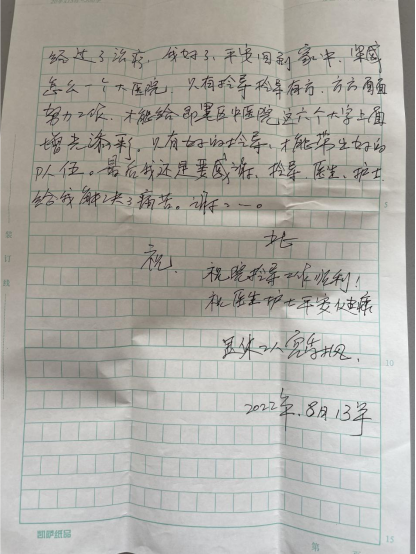 经过了治疗，我好了，平安回到家中。
怎么一个大医院，只有拎导拎导有方，方方面面
努力工作，才能给即墨区中医院这六个大字上面
增光添彩。只有好的拎导，才能带出好的
队伍。最后我还是要感谢，拎导、医生、护士
给我解决了痛苦。谢谢。
此
祝
祝院拎导工作顺利！
祝医生护士平安健康
退休工人
2022年.8月13号
装订线
5
10
15
第